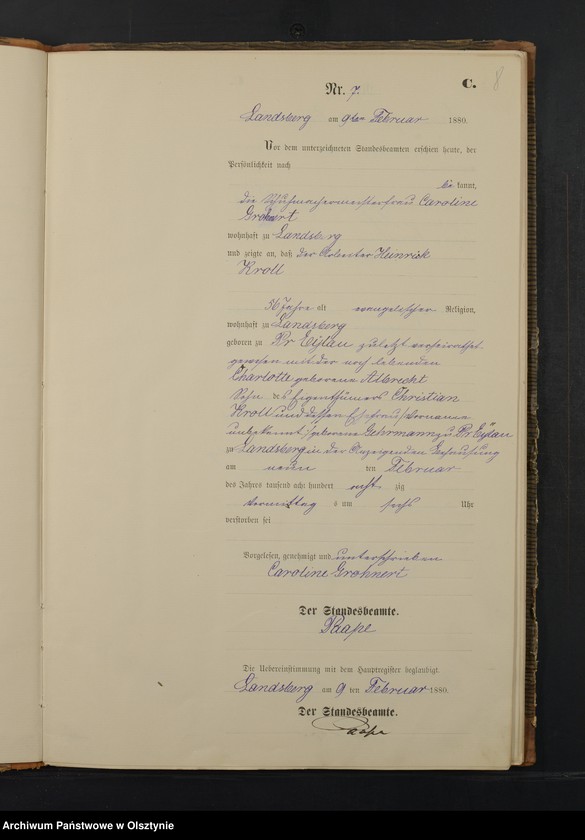 C.
8
Nr. 7.
Landsberg am 9ten Februar 1880.
Vor dem unterzeichneten Standesbeamten erschien heute, der
Persönlichkeit nach
be kannt,
die Schuhmachermeisterfrau Caroline
Grohnert
wohnhaft zu Landsberg
und zeigte an, daß der Arbeiter Heinrich
Kroll
56 Jahre alt evangelischer Religion,
wohnhaft zu Landsberg
geboren zu Pr Eylau zuletzt verheirathet
gewesen mit der noch lebenden
Charlotte geborene Albrecht
Sohn des Eigenthümers Christian
Kroll und dessen Ehefrau, Vorname
unbekannt, geborene Gehrmann zu Pr. Eylau
zu Landsberg in der Anzeigenden Behausung
am neun ten Februar
des Jahres tausend acht hundert acht zig
Vormittag s um sechs Uhr
verstorben sei
Vorgelesen, genehmigt und unterschrieben
Caroline Grohnert
Der Standesbeamte.
Raape
Die Uebereinstimmung mit dem Hauptregister beglaubigt.
Landsberg am 9 ten Februar 1880.
Der Standesbeamte.
Raape
Archiwum Państwowe w Olsztynie